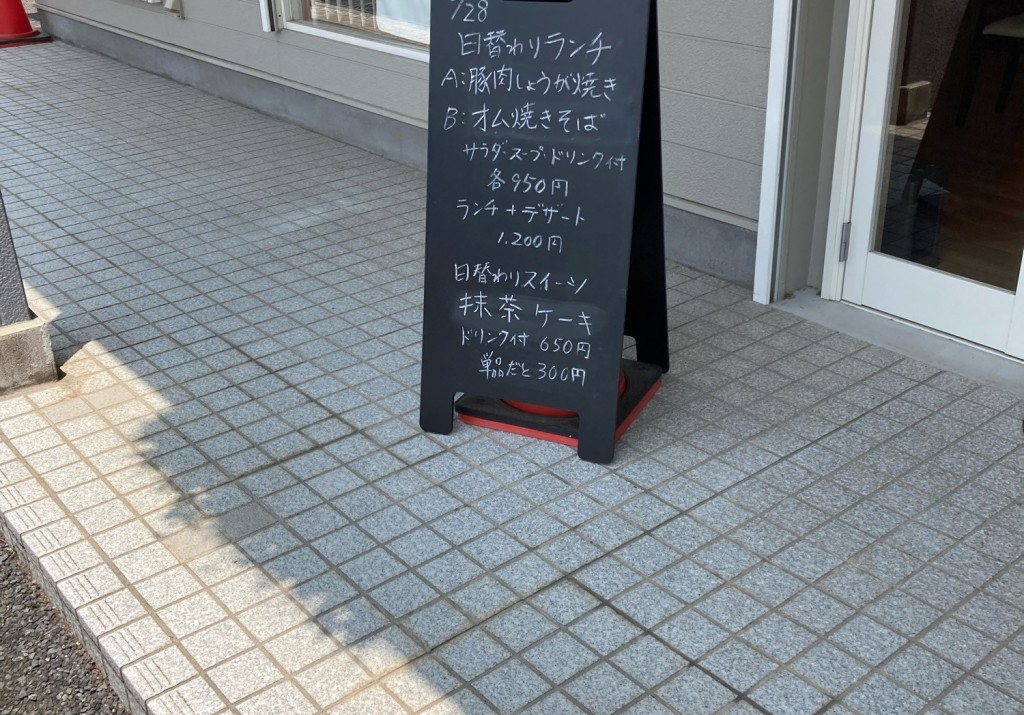 /28
日替わりランチ
A:豚肉しょうが焼き
B:オム焼きそば
サラダ・スープ・ドリンク付
各950円
ランチ+デザート
1,200円
日替わりスイーツ
抹茶ケーキ
ドリンク付 650円
単品だと300円